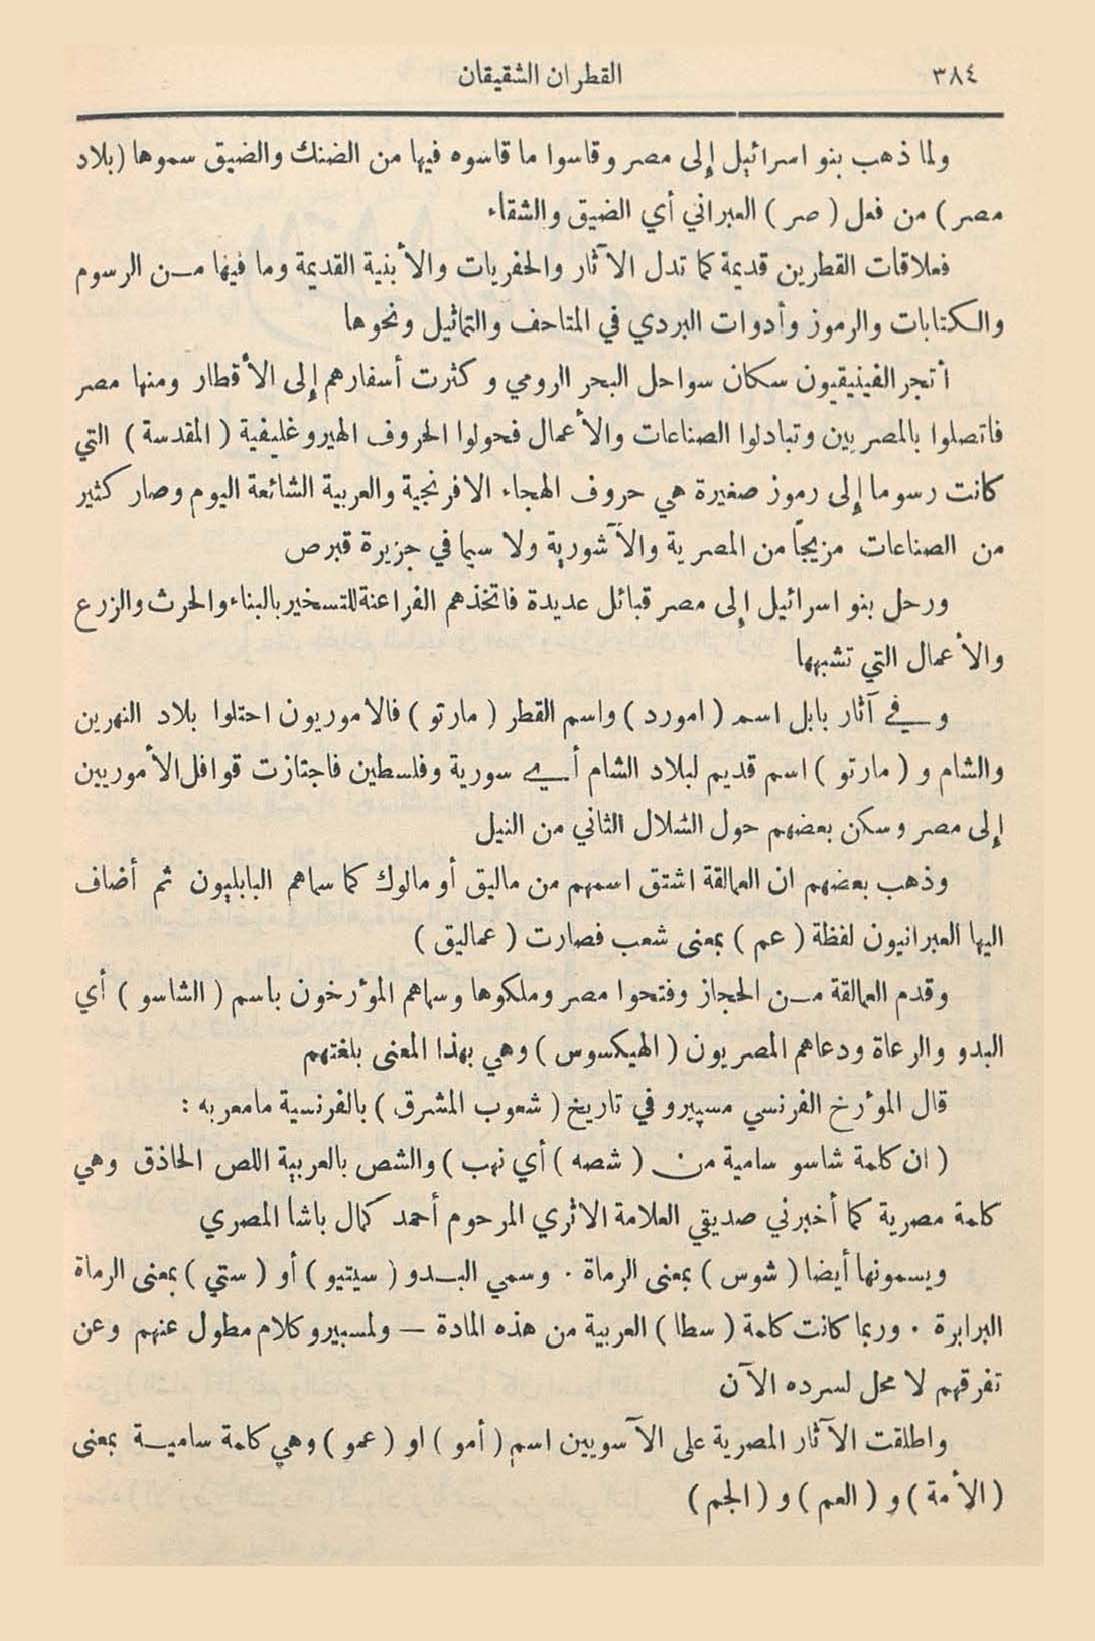 ٣٨٤
القطران الشقيقان
ولما ذهب بنو اسرائيل إلى مصر وقاسوا ما قاسوه فيها من الضنك والضيق سموها (بلاد
مصر) من فعل (صر) العبراني أي الضيق والشقاء
فعلاقات القطرين قديمة كما تدل الآثار والحفريات والأبنية القديمة وما فيها مـن الرسوم
والكتابات والرموز وأدوات البردي في المتاحف والتماثيل ونحوها
أتجر الفينيقيون سكان سواحل البحر الرومي وكثرت أسفارهم إلى الأقطار ومنها مصر
فاتصلوا بالمصريين وتبادلوا الصناعات والأعمال فحولوا الحروف الهيروغليفية (المقدسة) التي
كانت رسوما إلى رموز صغيرة هي حروف الهجاء الافرنجية والعربية الشائعة اليوم وصار كثير
من الصناعات مزيجاً من المصرية والآشورية ولا سيما في جزيرة قبرص
ورحل بنو اسرائيل إلى مصر قبائل عديدة فاتخذهم الفراعنة للتسخير بالبناء والحرث والزرع
والأعمال التي تشبهها
وفي آثار بابل اسم (امورد) واسم القطر (مارتو) فالاموريون احتلوا بلاد النهرين
والشام و (مارتو) اسم قديم لبلاد الشام أي سورية وفلسطين فاجتازت قوافل الأموريين
إلى مصر وسكن بعضهم حول الشلال الثاني من النيل
وذهب بعضهم ان العمالقة اشتق اسمهم من ماليق أو مالوك كما سماهم البابليون ثم أضاف
اليها العبرانيون لفظة (عم) بمعنى شعب فصارت (عماليق)
وقدم العمالقة مـن الحجاز وفتحوا مصر وملكوها وسماهم المؤرخون باسم (الشاسو) أي
البدو والرعاة ودعاهم المصريون (الهيكسوس) وهي بهذا المعنى بلغتهم
قال المؤرخ الفرنسي مسپيرو في تاريخ (شعوب المشرق) بالفرنسية مامعربه :
(ان كلمة شاسو سامية من (شصه) أي نهب) والشص بالعربية اللص الحاذق وهي
كلمة مصرية كما أخبرني صديقي العلامة الاثري المرحوم أحمد كمال باشا المصري
ويسمونها أيضا (شوس) بمعنى الرماة . وسمي البـدو (سيتيو) أو (ستي) بمعنى الرماة
البرابرة . وربما كانت كلمة (سطا) العربية من هذه المادة — ولمسبيرو كلام مطول عنهم وعن
تفرقهم لا محل لسرده الآن
واطلقت الآثار المصرية على الآسويين اسم (أمو) او (عمو) وهي كلمة ساميـة بمعنى
(الأمة) و (العم) و (الجم)